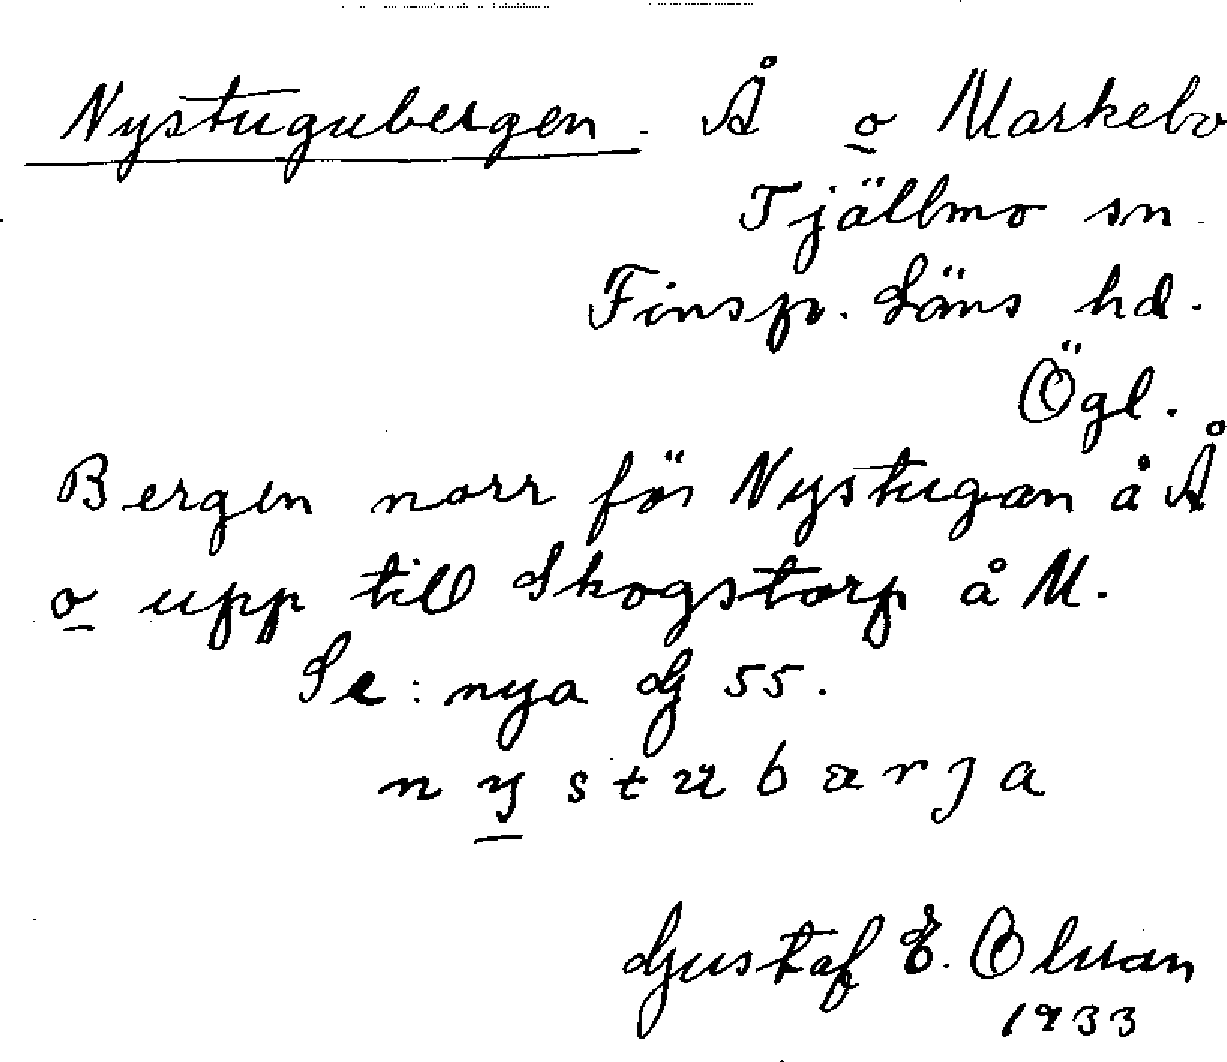 Nystugubergen. Å o Markebo
Tjällmo sn.
Finsp. Läns hd.
Ögl.
Bergen norr för Nystugan å Å
o upp till Skogstorp å M.
Se: nya G 55.
nystubarja
Gustaf E. Olsson
1933